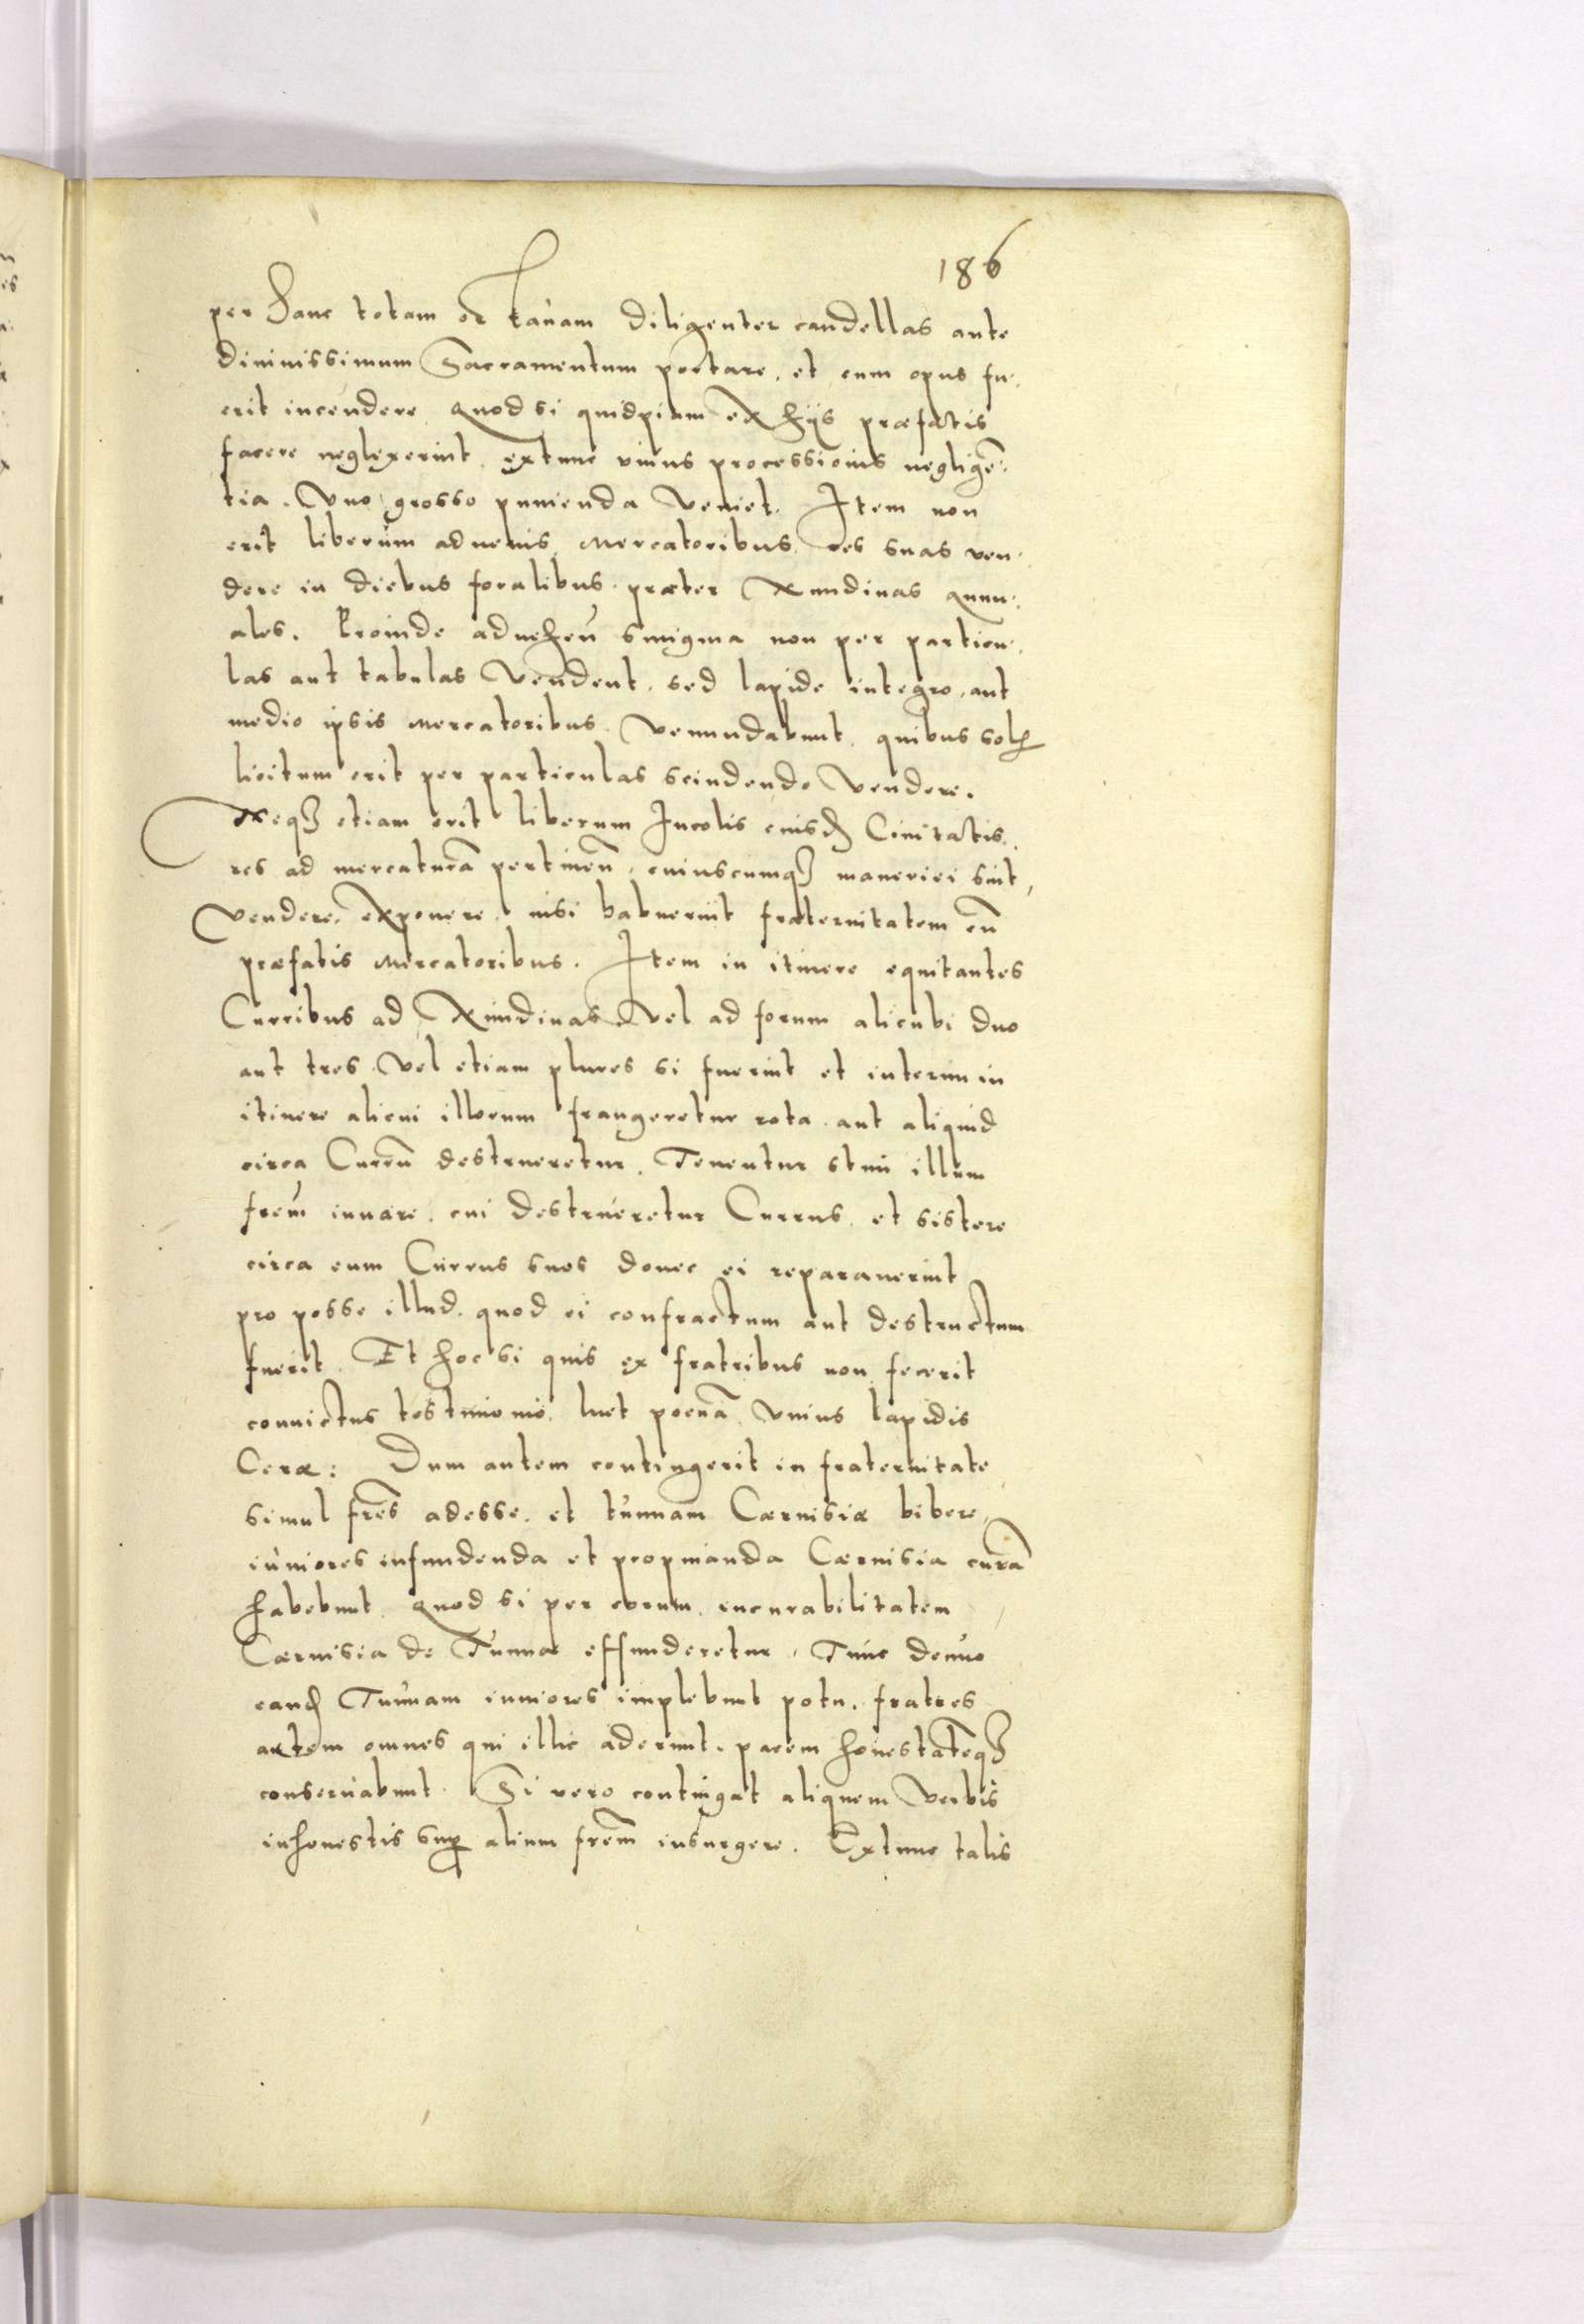 186
per hanc totam octauam diligenter candellas ante
diuinissimum Sacramentum portare, et cum opus fu-
erit incendere. Quod si quidpiam ex hÿs præfatis
facere neglexerint, extunc vnius processionis negligẽ-
tia. Vno grosso punienda Veniet. Item non
erit liberum aduenis Mercatoribus res suas ven-
dere in diebus foralibus præter Nundinas Annu-
ales. Proinde adueheñ smigma non per particu-
las aut tabulas Vendent, sed lapide integro, aut
medio ipsis Mercatoribus Venundabunt, quibus
licitum erit per particulas scindendo Vendere.
Neqȝ etiam erit liberum Incolis eiusd Ciuitatis
res ad mercaturã pertineñ, cuiuscumqȝ maneriei sint,
Vendere, exponere, nisi habuerint fraternitatem cũ
præfatis Mercatoribus. Item in itinere equitantes
Curribus ad Nundinas, Vel ad forum alicubi duo
aut tres Vel etiam plures si fuerint et interim in
itinere alicui illorum frangeretur rota aut aliquid
circa Currũ destrueretur, Tenentur illum
frem̃ iuuare, cui destrueretur Currus, et sistere
circa eum Currus suos donec ei reparauerint
pro posse illud, quod ei confractum aut destructum
fuerit. Et hoc si quis ex fratribus non fecerit
conuictus testimonio, luet poenã Vnius lapidis
Ceræ: Dum autem contingerit in fraternitate
simul fr̃es adesse, et tunnam Cæruisiæ bibere,
iuniores infundenda et propinanda Cæruisia curã
habebunt. Quod si per eorum incurabilitatem
Cæruisia de Tunna effunderetur, Tunc denuo
eand Tunnam iuniores implebunt potu, fratres
autem omnes qui illic aderunt, pacem honestatẽqȝ
conseruabunt. Si vero contingat aliquem Verbis
inhonestis sup alium frem̃ insurgere. Extunc talis